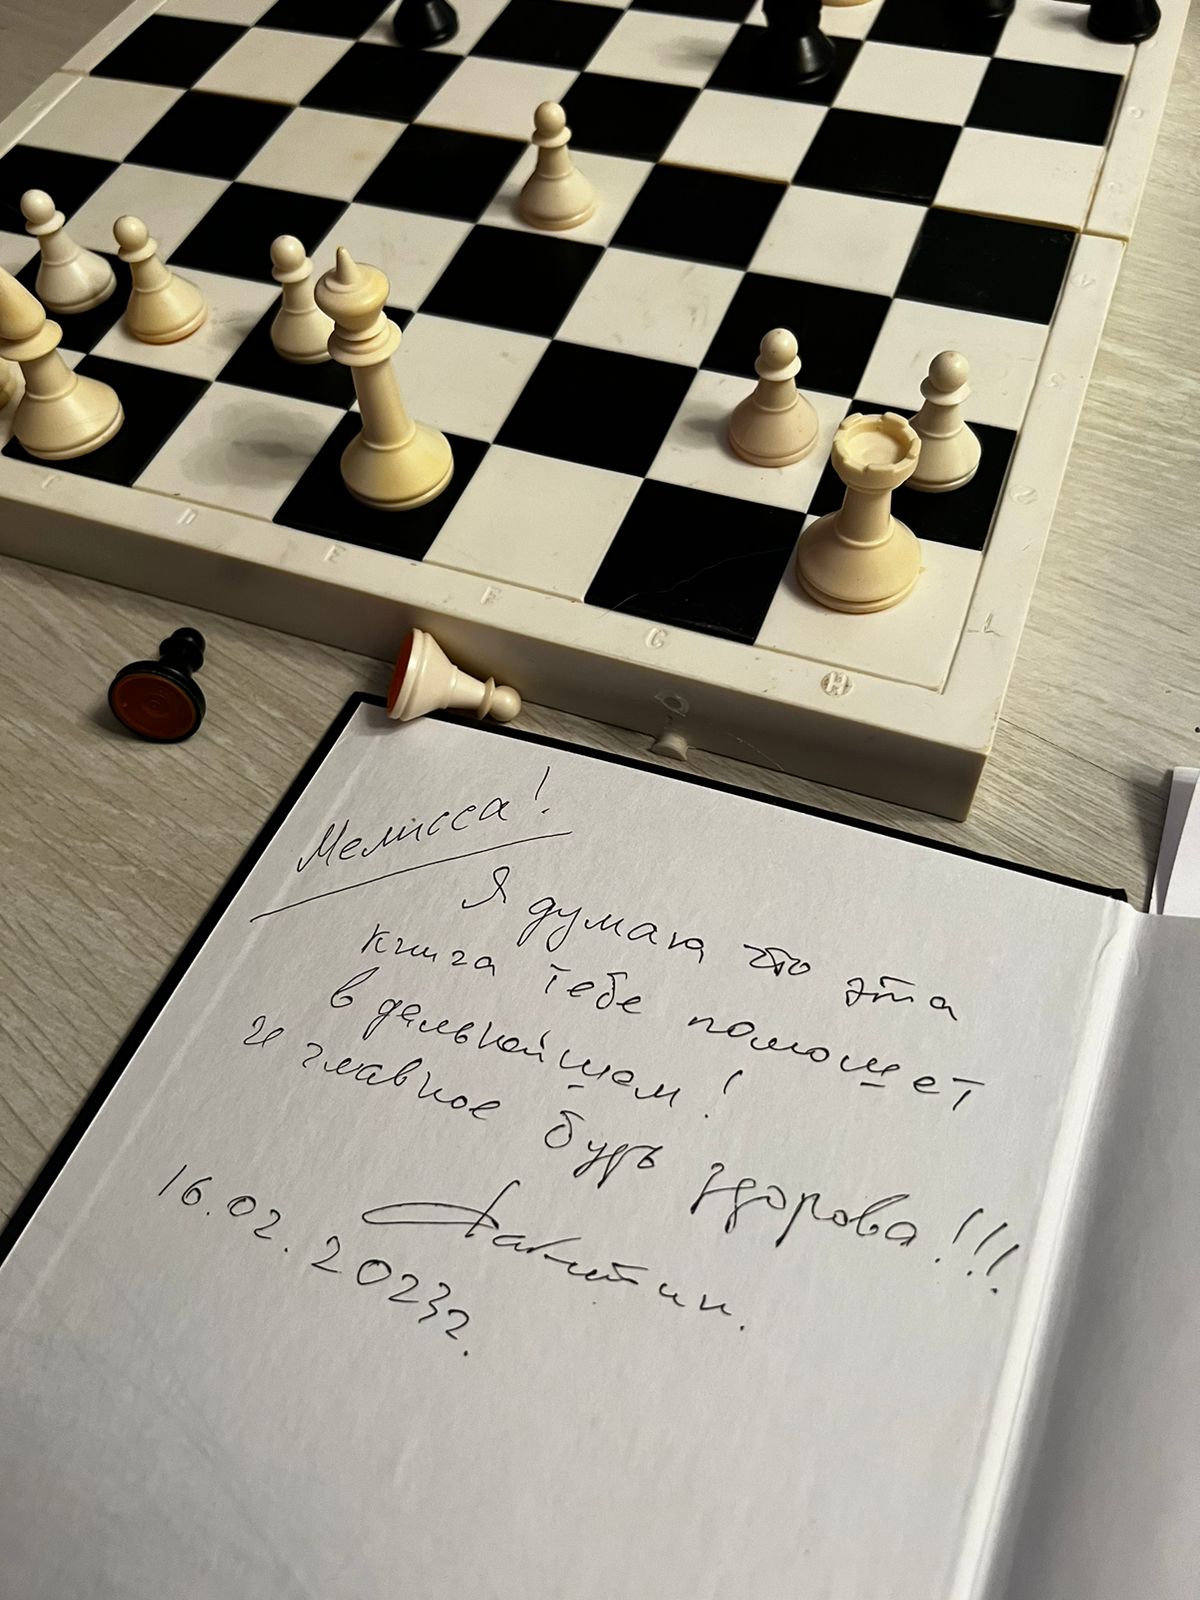 C D E F G H
1
2
Мелисса!
Я думаю что эта
книга тебе помошет
в дальнейшем!
и главное будь здорова!!!
16.02.2023г.